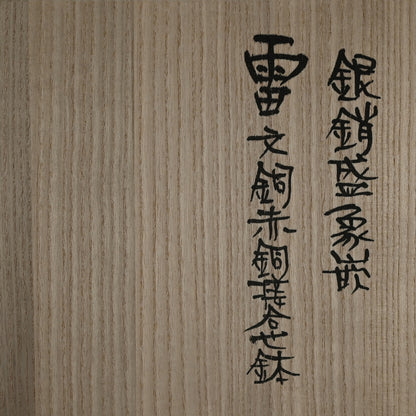 銀銷盛象嵌
雷文銅赤銅接合せ鉢